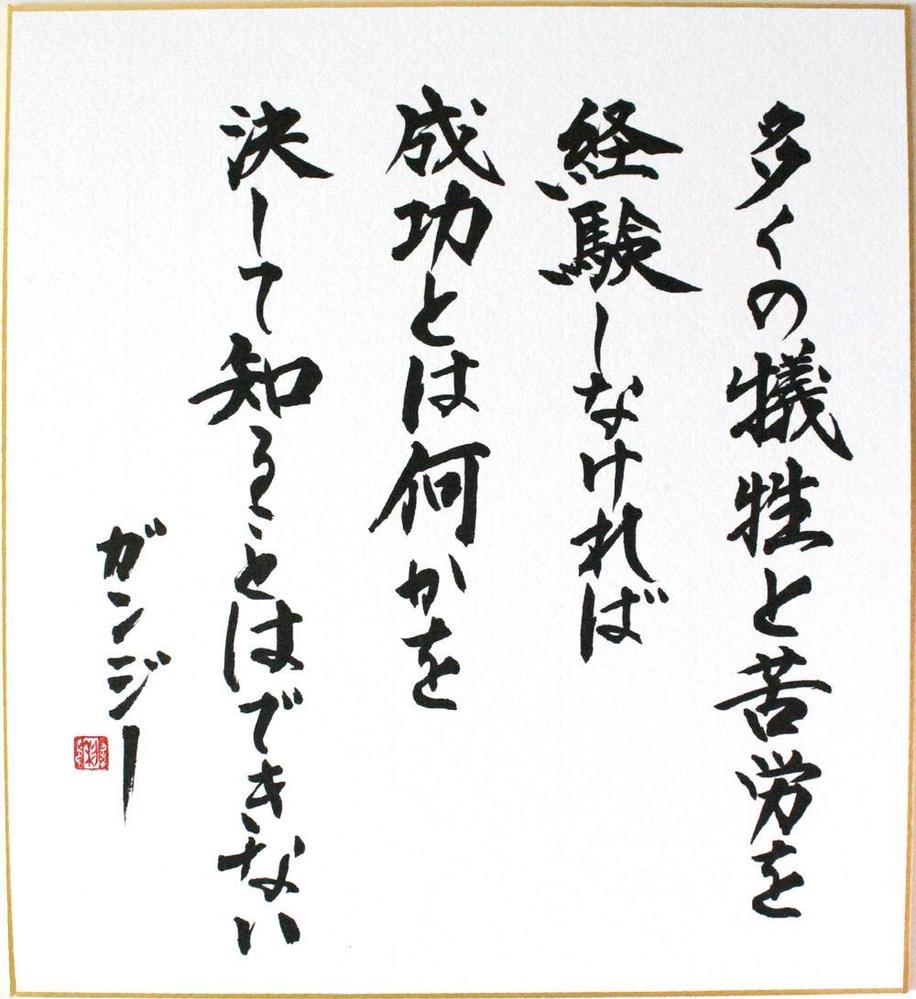 多くの犠牲と苦労を
経験しなければ
成功とは何かを
決して知ることはできない
ガンジー